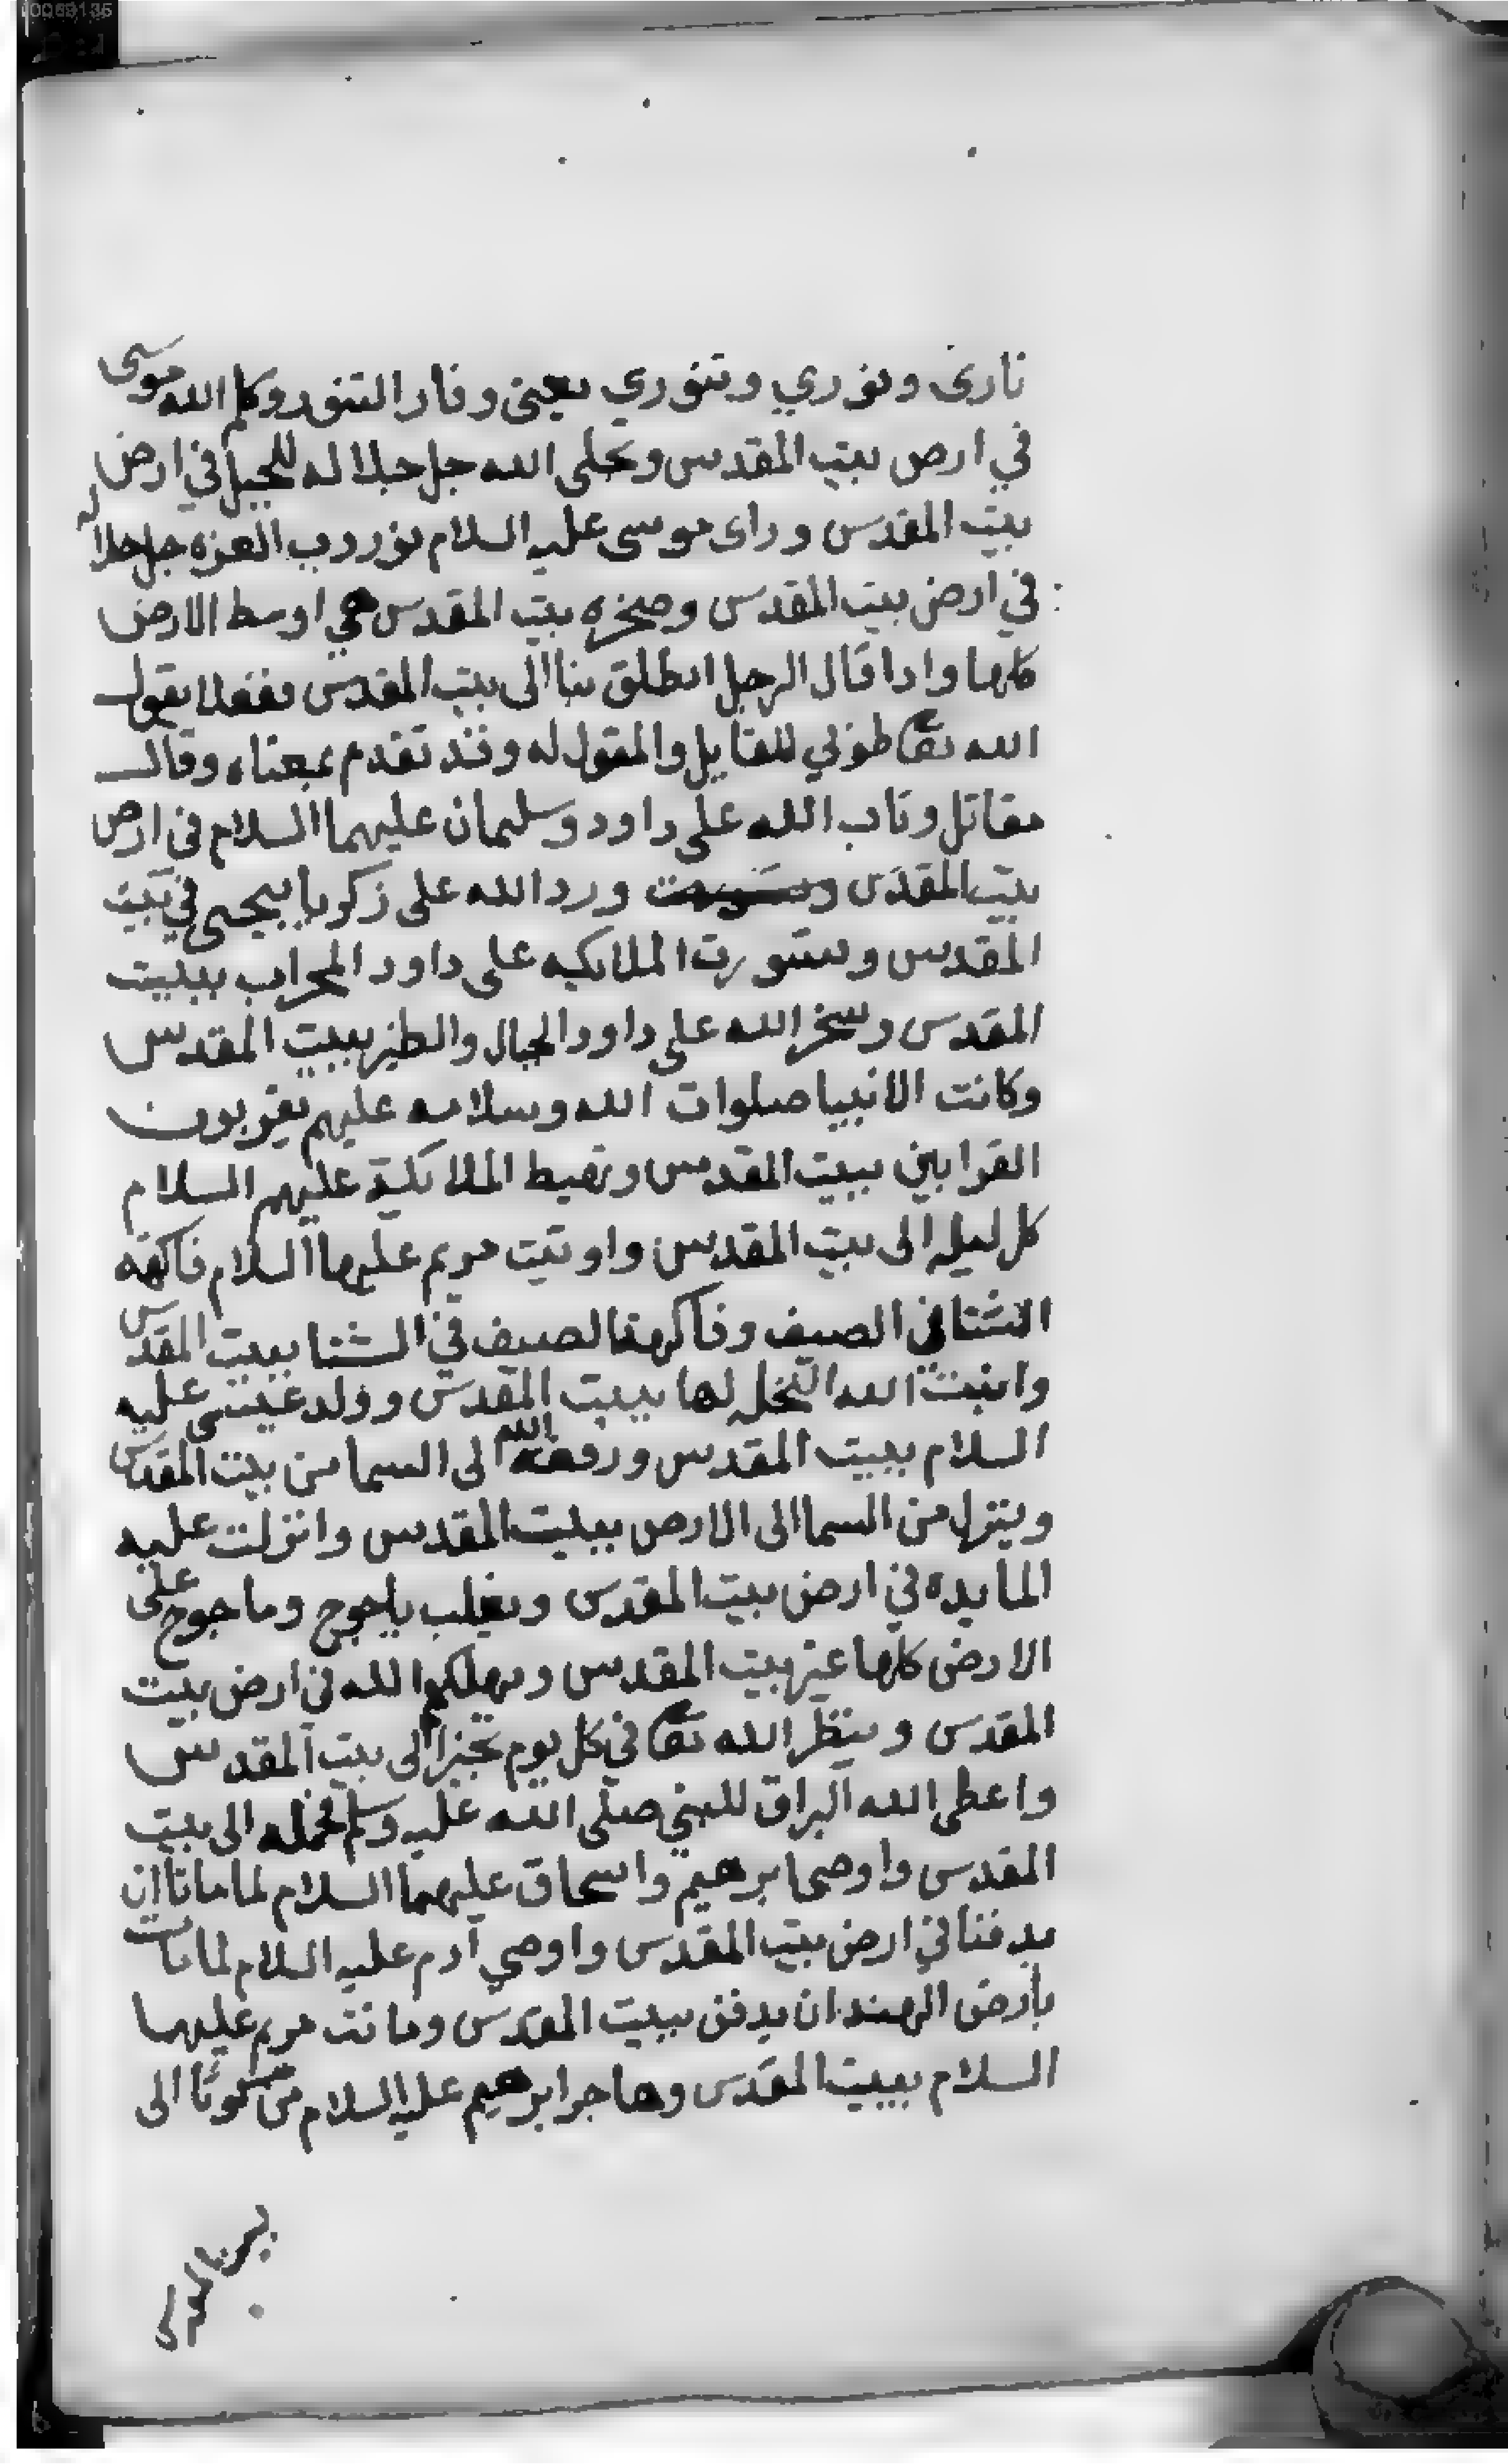 0069135
نارى ونوري وتنوري يعنى وفار التنور وكلم الله موسى
في ارض بيت المقدس وتجلى الله جل جلاله للجبل في ارض
بيت المقدس وراى موسى عليه السلام نور رب العزه جل جلاله
في ارض بيت المقدس وصخره بيت المقدس هي اوسط الارض
كلها وادا قال الرجل انطلق بنا الى بيت المقدس ففعلا يقول
الله تعا طوبي للقايل والمقول له وقد تقدم بمعناه وقال
مقاتل وتاب الله على داود وسليمان عليهما السلام في ارض
بيت المقدس ورد الله على زكريا يحيى في بيت
المقدس وتسورت الملايكه على داود المحراب ببيت
المقدس وسخر الله على داود الجبال والطير ببيت المقدس
وكانت الانبيا صلوات الله وسلامه عليهم يقربون
القرابين ببيت المقدس وتهبط الملايكة عليهم السلام
كل ليله الى بيت المقدس واوتيت مريم عليها السلام فاكهة
الشتا في الصيف وفاكهة الصيف في الشتا ببيت المقدس
وانبت الله النخله لها ببيت المقدس وولد عيسى عليه
السلام ببيت المقدس ورفعه الله الى السما من بيت المقدس
وينزل من السما الى الارض ببيت المقدس وانزلت عليه
المايده في ارض بيت المقدس ويغلب ياجوج وماجوج على
الارض كلها غير بيت المقدس ويهلكهم الله في ارض بيت
المقدس وينظر الله تعا في كل يوم بخير الى بيت المقدس
واعطى الله البراق للنبي صلى الله عليه وسلم فحمله الى بيت
المقدس واوصى ابرهيم واسحاق عليهما السلام لما ماتا ان
يدفنا في ارض بيت المقدس واوصي آدم عليه السلام لما مات
بأرض الهند ان يدفن ببيت المقدس وماتت مريم عليها
السلام ببيت المقدس وهاجر ابرهيم عليه السلام من كوثا الى